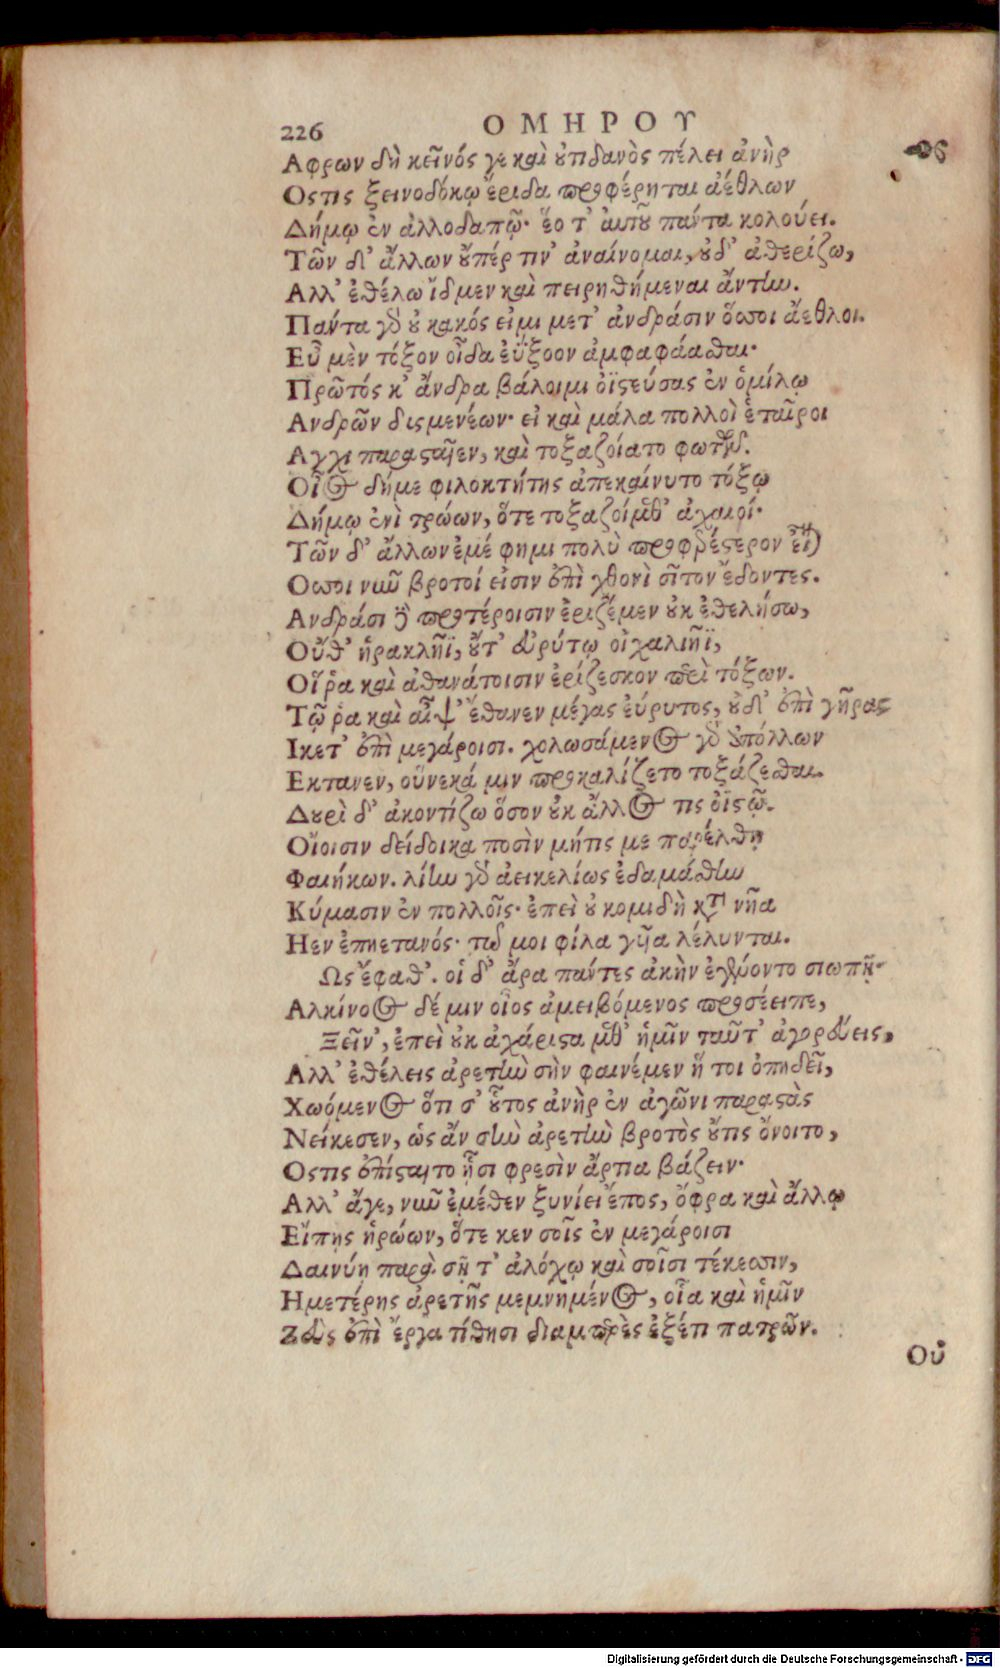 226 ΟΜΗΡΟΥ
Αφρων δὴ κεῖνός γε καὶ ȣ̓τιδανὸς πέλει ἀνὴρ
Οςτις ξεινοδόκῳ ἔριδα προφέρηται ἀέθλων
Δήμῳ ἐν ἀλλοδαπῷ· ἕο τ' αὐτȣ͂ πάντα κολούει.
Τῶν δ' ἄλλων ȣ̓́πέρ τιν' ἀναίνομαι, ȣ̓δ' ἀθερίζω,
Αλλ' ἐθέλω ἴδμεν καὶ πειρηθήμεναι ἄντην.
Πάντα γὸ ȣ̓ κακός εἰμι μετ' ἀνδράσιν ὅσσοι ἄεθλοι.
Εὖ μὲν τόξον οἶδα ἐΰξοον ἀμφαφάασθαι·
Πρῶτός κ' ἄνδρα βάλοιμι ὀϊςεύσας ἐν ὁμίλῳ
Ανδρῶν δισμενέων· εἰ καὶ μάλα πολλοὶ ἑταῖροι
Αγχι παραςαῖεν, καὶ τοξαζοίατο φωτῶν.
Οἶος δήμε φιλοκτήτης ἀπεκαίνυτο τόξῳ
Δήμῳ ἐνὶ τρώων, ὅτε τοξαζοίμεθ' ἀχαιοί·
Τῶν δ' ἄλλων ἐμέ φημι πολὺ προφερέςερον εἶναι
Οσσοι νιῦ βροτοί εἰσιν ἐπὶ χθονὶ σῖτον ἔδοντες.
Ανδράσι δὲ προτέροισιν ἐριζέμεν ȣ̓κ ἐθελήσω,
Οὔθ' ἡρακλῆϊ, ȣ̓́τ' εὐρύτῳ οἰχαλιῆϊ,
Οἵ ῥα καὶ ἀθανάτοισιν ἐρίζεσκον περὶ τόξων.
Τῷ ῥα καὶ αἶψ' ἔθανεν μέγας εὐρυτος, ȣ̓δ' ἐπὶ γῆρας
Ικετ' ἐπὶ μεγάροισι. χολωσάμενος γὸ ἀπόλλων
Εκτανεν, οὕνεκά μιν προκαλίζετο τοξάζεσθαι.
Δȣρὶ δ' ἀκοντίζω ὅσον ȣ̓κ ἄλλος τις ὀϊςῷ.
Οἴοισιν δείδοικα ποσὶν μήτις με παρέλθῃ
Φαιήκων. λίην γὸ ἀεικελίως ἐδαμάσθην
Κύμασιν ἐν πολλοῖς· ἐπεὶ ȣ̓ κομιδὴ κατὰ νῆα
Ηεν ἐπηετανός· τῷ μοι φίλα γυῖα λέλυνται.
Ως ἔφαθ'. οἱ δ' ἄρα πάντες ἀκὴν ἐγένοντο σιωπῇ·
Αλκίνοος δέ μιν οἶος ἀμειβόμενος προσέειπε,
Ξεῖν', ἐπεὶ ȣ̓κ ἀχάριςα μεθ' ἡμῖν ταῦτ' ἀγορεύεις,
Αλλ' ἐθέλεις ἀρετὴν σὴν φαινέμεν ἥ τοι ὀπηδεῖ,
Χωόμενος ὅτι σ' ȣ̔͂τος ἀνὴρ ἐν ἀγῶνι παραςὰς
Νείκεσεν, ὡς ἄν σὴν ἀρετὴν βροτὸς ȣ̓́τις ὄνοιτο,
Οςτις ἐπίςαιτο ᾗσι φρεσὶν ἄρτια βάζειν·
Αλλ' ἄγε, νιῦ ἐμέθεν ξυνίει ἔπος, ὄφρα καὶ ἄλλῳ
Εἴπῃς ἡρώων, ὅτε κεν σοῖς ἐν μεγάροισι
Δαινύῃ παρὰ σῇ τ' ἀλόχῳ καὶ σοῖσι τέκεσσιν,
Ημετέρης ἀρετῆς μεμνημένος, οἷα καὶ ἡμῖν
Ζεὺς ἐπὶ ἔργα τίθησι διαμπερὲς ἐξέτι πατρῶν.
Οὐ
Digitalisierung gefördert durch die Deutsche Forschungsgemeinschaft - DFG